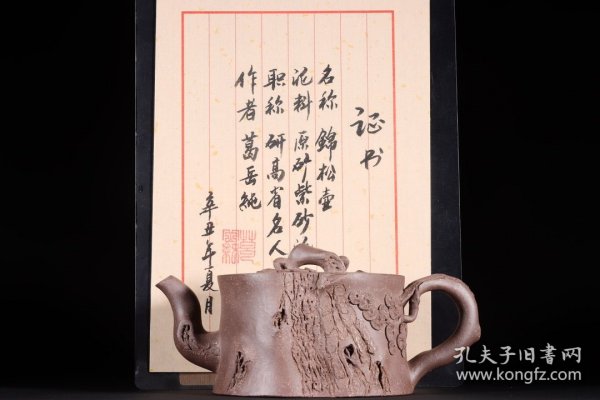 证书
名称 錦松壶
泥料 原矿紫砂
职称 研高省名人
作者 葛岳純
辛丑年夏月
孔夫子旧书网
www.kongfz.com